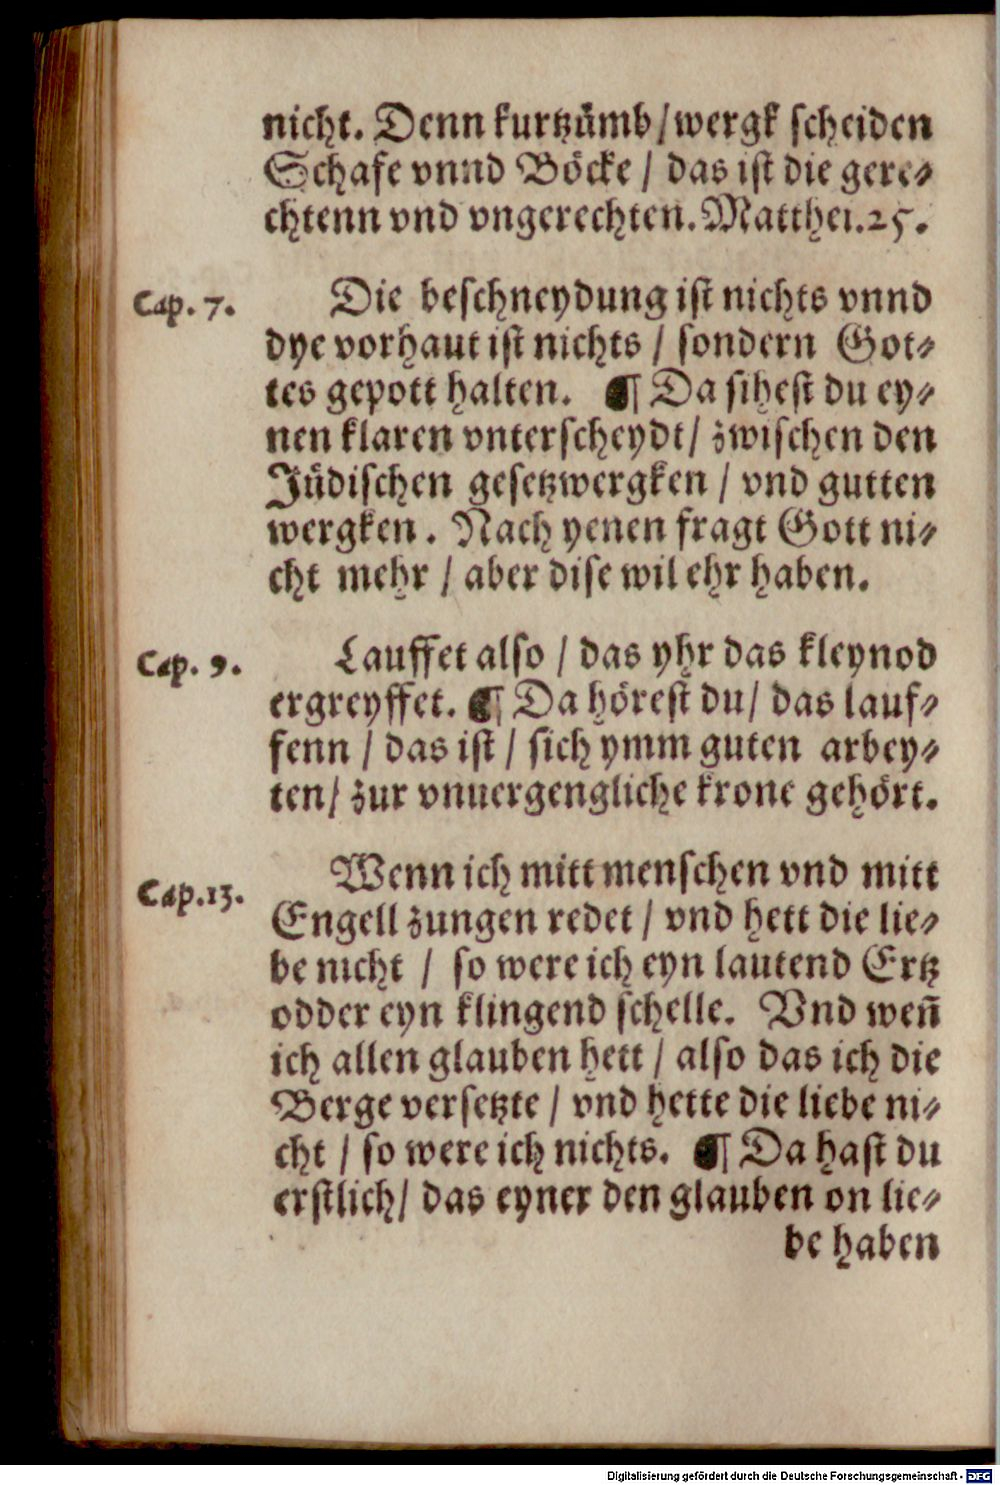 nicht. Denn kurtzůmb / wergk scheiden
Schafe vnnd Böcke / das ist die gere⸗
chtenn vnd vngerechten. Matthei. 25.
Cap. 7. Die beschneydung ist nichts vnnd
dye vorhaut ist nichts / sondern Got⸗
tes gepott halten. ¶ Da sihest du ey⸗
nen klaren vnterscheydt / zwischen den
Jüdischen gesetzwergken / vnd gutten
wergken. Nach yenen fragt Gott ni⸗
cht mehr / aber dise wil ehr haben.
Cap. 9. Lauffet also / das yhr das kleynod
ergreyffet. ¶ Da hörest du / das lauf⸗
fenn / das ist / sich ymm guten arbey⸗
ten / zur vnuergengliche krone gehört.
Cap. 13. Wenn ich mitt menschen vnd mitt
Engell zungen redet / vnd hett die lie⸗
be nicht / so were ich eyn lautend Ertz
odder eyn klingend schelle. Vnd weñ
ich allen glauben hett / also das ich die
Berge versetzte / vnd hette die liebe ni⸗
cht / so were ich nichts. ¶ Da hast du
erstlich / das eyner den glauben on lie⸗
be haben
Digitalisierung gefördert durch die Deutsche Forschungsgemeinschaft - DFG